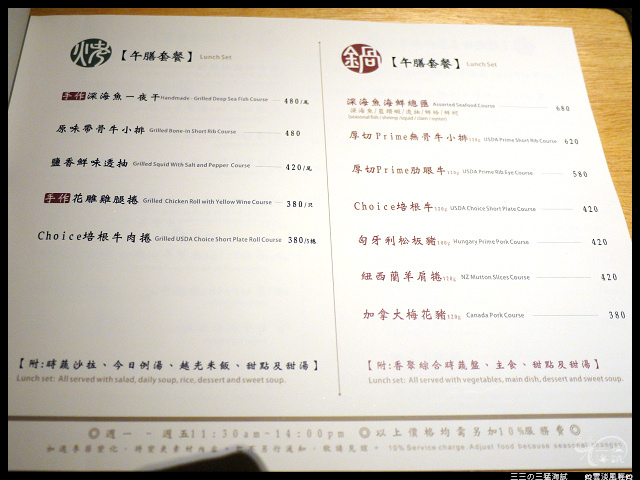 燒 【午膳套餐】 Lunch Set
手作 深海魚一夜干 Handmade - Grilled Deep Sea Fish Course 480/尾
原味帶骨牛小排 Grilled Bone-in Short Rib Course 480
鹽香鮮味透抽 Grilled Squid With Salt and Pepper Course 420/尾
手作 花雕雞腿捲 Grilled Chicken Roll with Yellow Wine Course 380/只
Choice培根牛肉捲 Grilled USDA Choice Short Plate Roll Course 380/5捲
【附:時蔬沙拉、今日例湯、越光米飯、甜點及甜湯】
Lunch set: All served with salad, daily soup, rice, dessert and sweet soup.
鍋 【午膳套餐】 Lunch Set
深海魚海鮮總匯 Assorted Seafood Course 680
seasonal fish / shrimp / squid / clam / oyster)
厚切Prime無骨牛小排120g USDA Prime Short Rib Course 620
厚切Prime肋眼牛120g USDA Prime Rib Eye Course 580
Choice培根牛120g USDA Choice Short Plate Course 420
匈牙利松板豬100g Hungary Prime Pork Course 420
紐西蘭羊肩捲120g NZ Mutton Slices Course 420
加拿大梅花豬120g Canada Pork Course 380
【附:香聚綜合時蔬盤、主食、甜點及甜湯】
Lunch set: All served with vegetables, main dish, dessert and sweet soup.
◎週一--週五11:30am-14:00pm ◎以上價格均需另加10%服務費◎
10% Service charge. Adjust food because seasonal changes
三三の三猛海賊 雲淡風輕